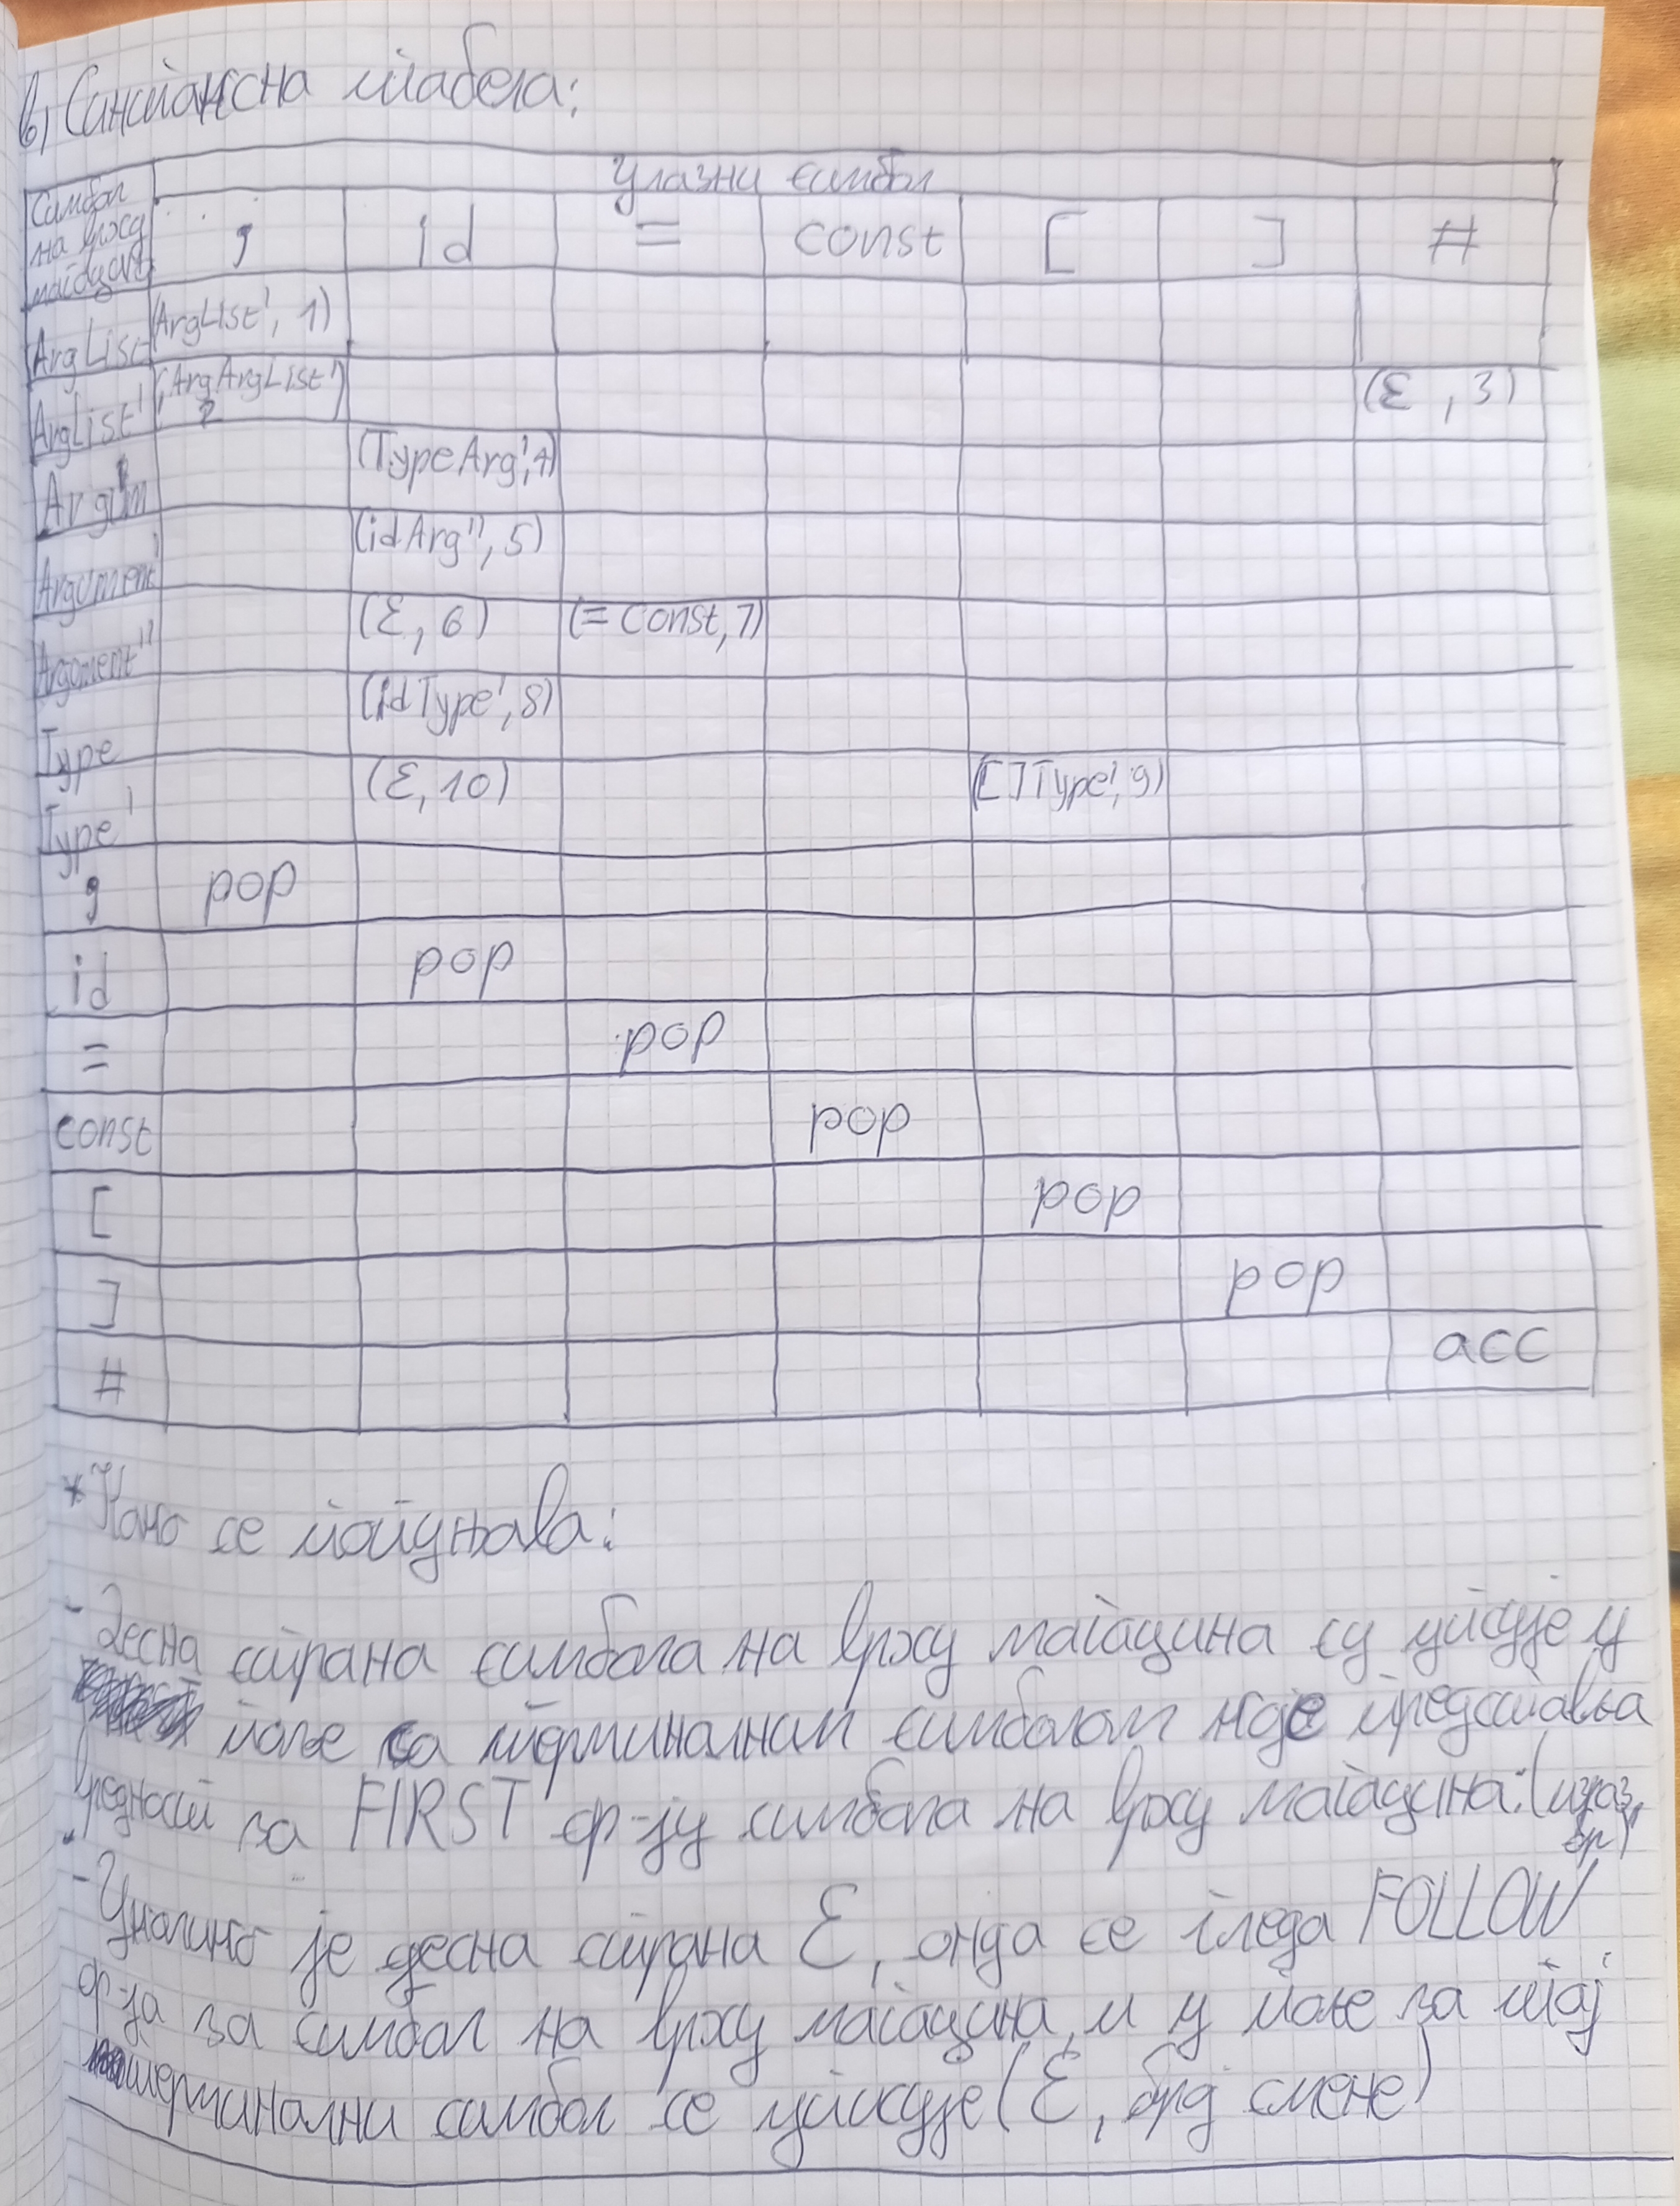 в) Синтаксна табела:
Улазни симбол
Симбол на врху магацина , id = const [ ] #
ArgList (ArgList', 1)
ArgList' (,ArgArgList', 2) (ε, 3)
Argum (TypeArg', 4)
Argument' (idArg'', 5)
Argument'' (ε, 6) (= const, 7)
Type (idType', 8)
Type' (ε, 10) ([]Type', 9)
, pop
id pop
= pop
const pop
[ pop
] pop
# acc
* Како се попуњава:
- Десна страна симбола на врху магацина су уписује у
поље са терминалним симболом које представља
вредност за FIRST ф-ју симбола на врху магацина: (израз, бр)
- Уколико је десна страна ε, онда се гледа FOLLOW
ф-ја за симбол на врху магацина, и у поље за тај
терминални симбол се уписује (ε, број смене)